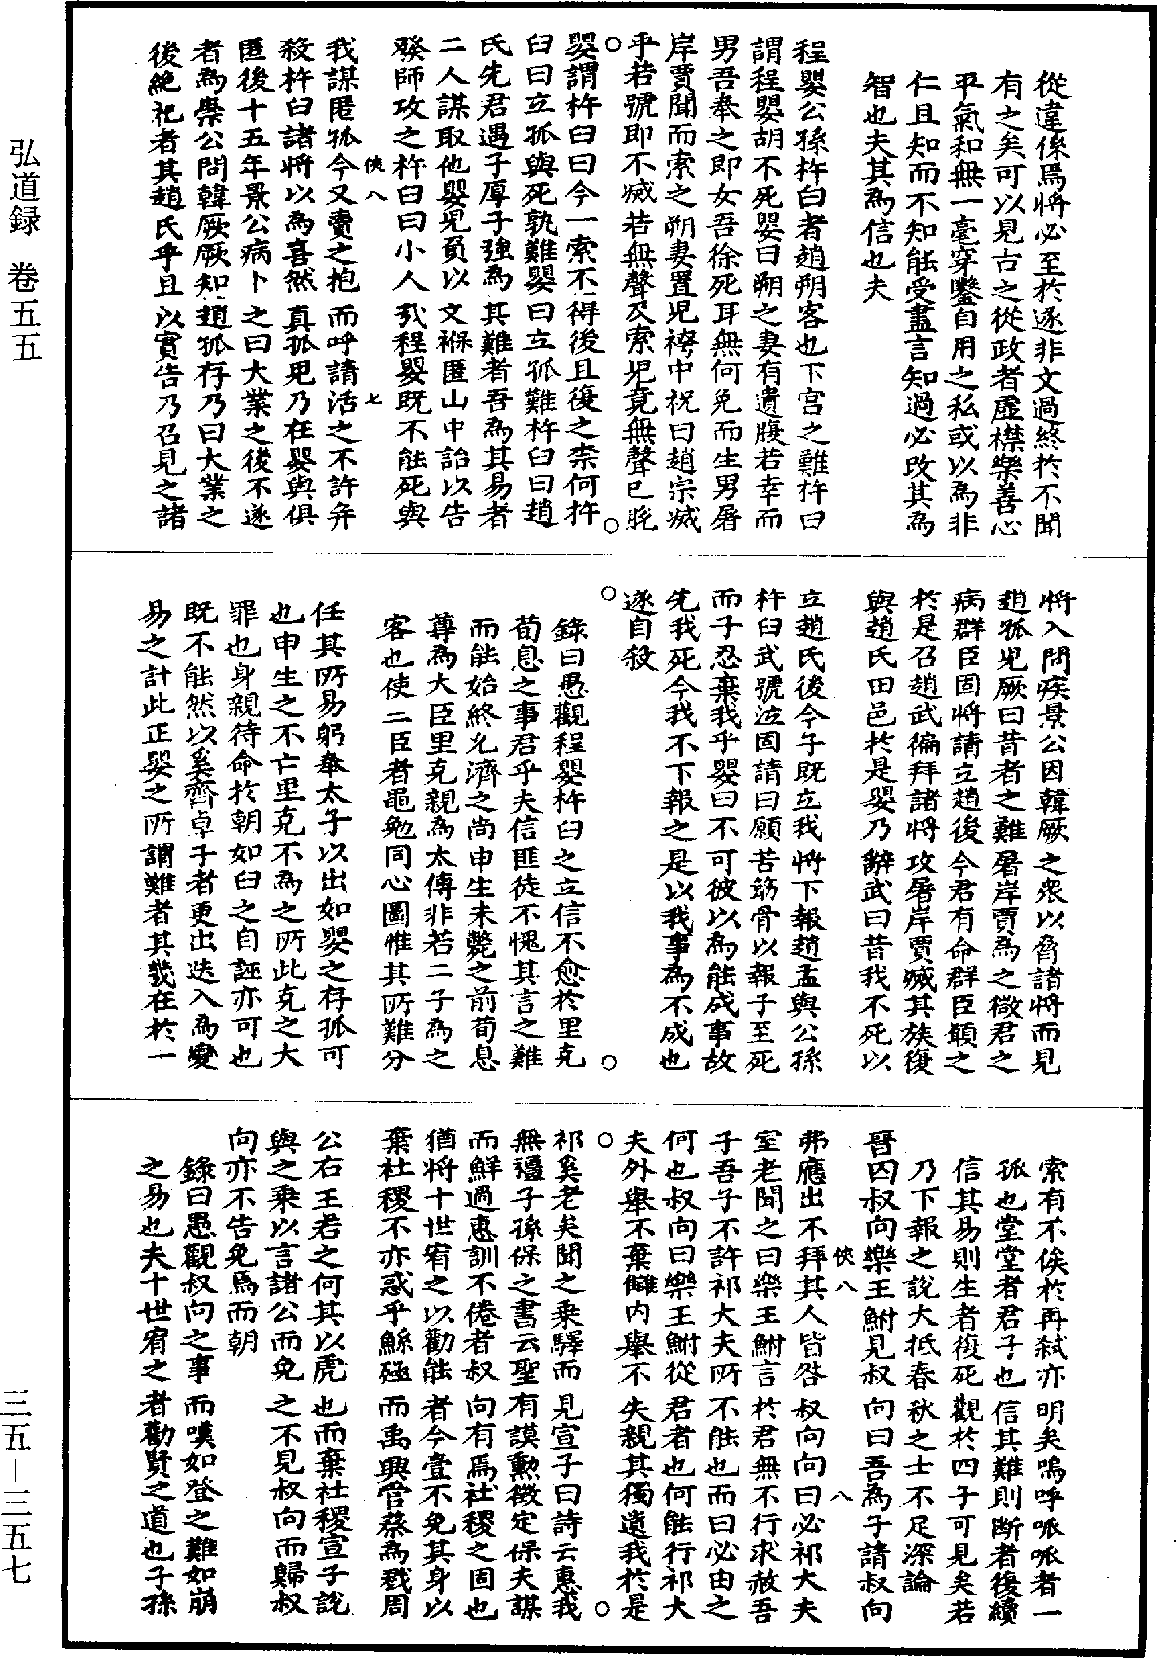 弘道録 卷五五
三五—三五七
從違係焉將必至於遂非文過終於不聞
有之矣可以見古之從政者虛襟樂善心
平氣和無一毫穿鑿自用之私或以為非
仁且知而不知能受盡言知過必改其為
智也夫其為信也夫
程嬰公孫杵臼者趙朔客也下宮之難杵臼
謂程嬰胡不死嬰曰朔之妻有遺腹若幸而
男吾奉之即女吾徐死耳無何免而生男屠
岸賈聞而索之朔妻置兒袴中祝曰趙宗滅
乎若號即不滅若無聲及索兒竟無聲已脫
嬰謂杵臼曰今一索不得後且復之柰何杵
臼曰立孤與死孰難嬰曰立孤難杵臼曰趙
氏先君遇子厚子強為其難者吾為其易者
二人謀取他嬰兒負以文褓匿山中詒以告
發師攻之杵臼曰小人哉程嬰既不能死與
俠八 七
我謀匿孤今又賣之抱而呼請活之不許并
殺杵臼諸將以為喜然真孤兒乃在嬰與俱
匿後十五年景公病卜之曰大業之後不遂
者為祟公問韓厥厥知趙孤存乃曰大業之
後絶祀者其趙氏乎且以實告乃召見之諸
將入問疾景公因韓厥之衆以脅諸將而見
趙孤兒厥曰昔者之難屠岸賈為之微君之
病群臣固將請立趙後今君有命群臣願之
於是召趙武徧拜諸將攻屠岸賈滅其族復
與趙氏田邑於是嬰乃辭武曰昔我不死以
立趙氏後今子既立我將下報趙孟與公孫
杵臼武號泣固請曰願苦筋骨以報子至死
而子忍棄我乎嬰曰不可彼以為能成事故
先我死今我不下報之是以我事為不成也
遂自殺
錄曰愚觀程嬰杵臼之立信不愈於里克
荀息之事君乎夫信匪徒不愧其言之難
而能始終允濟之尚申生未斃之前荀息
尊為大臣里克親為太傅非若二子為之
客也使二臣者黽勉同心圖惟其所難分
任其所易躬奉太子以出如嬰之存孤可
也申生之不亡里克不為之所此克之大
罪也身親待命於朝如臼之自誣亦可也
既不能然以奚齊卓子者更出迭入為變
易之計此正嬰之所謂難者其幾在於一
索有不俟於再弒亦明矣嗚呼哌哌者一
孤也堂堂者君子也信其難則断者後續
信其易則生者復死觀於四子可見矣若
乃下報之說大抵春秋之士不足深論
晉囚叔向樂王鮒見叔向曰吾為子請叔向
俠八 八
弗應出不拜其人皆咎叔向向曰必祁大夫
室老聞之曰樂王鮒言於君無不行求赦吾
子吾子不許祁大夫所不能也而曰必由之
何也叔向曰樂王鮒從君者也何能行祁大
夫外舉不棄讎内舉不失親其獨遺我於是
祁奚老矣聞之乘驛而見宣子曰詩云惠我
無疆子孫保之書云聖有謨勳徵定保夫謀
而鮮過惠訓不倦者叔向有焉社稷之固也
猶將十世宥之以勸能者今壹不免其身以
棄社稷不亦惑乎鯀殛而禹興管蔡為戮周
公右王若之何其以虎也而棄社稷宣子說
與之乘以言諸公而免之不見叔向而歸叔
向亦不告免焉而朝
錄曰愚觀叔向之事而嘆如登之難如崩
之易也夫十世宥之者勸賢之道也子孫